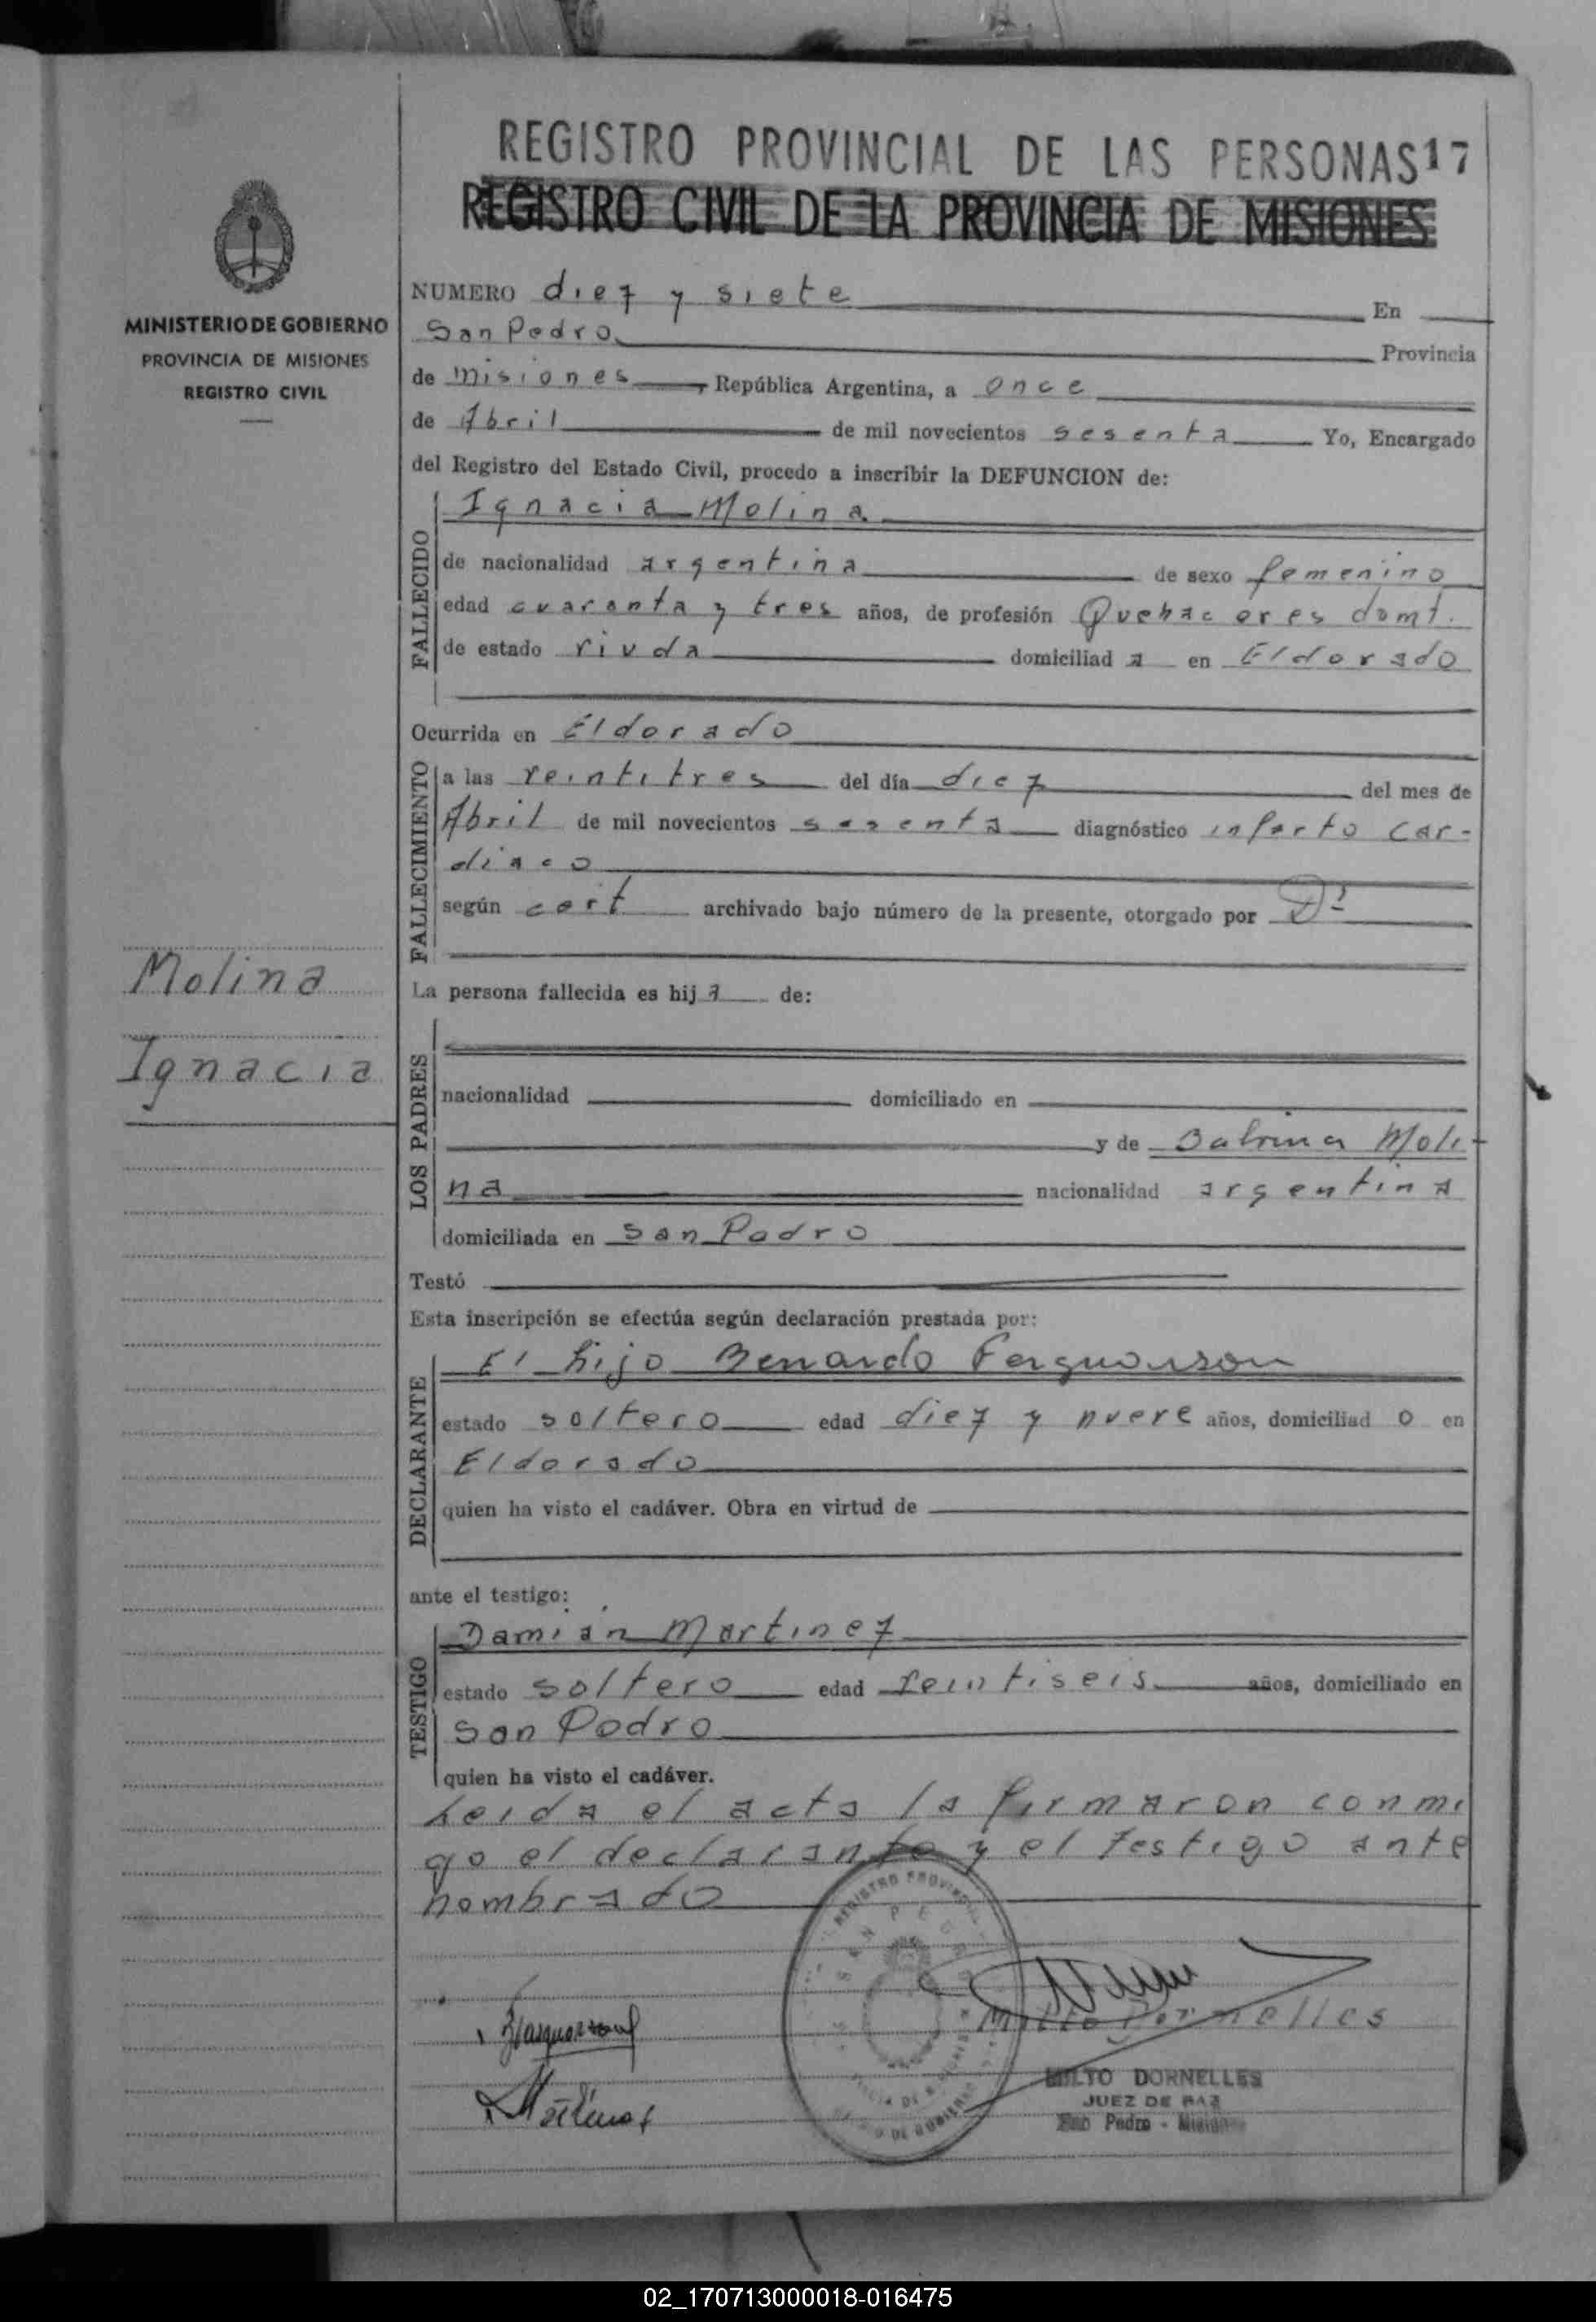 REGISTRO PROVINCIAL DE LAS PERSONAS 17
REGISTRO CIVIL DE LA PROVINCIA DE MISIONES
MINISTERIO DE GOBIERNO
PROVINCIA DE MISIONES
REGISTRO CIVIL
Molina
Ignacia
NUMERO diez y siete En
San Pedro Provincia
de Misiones, República Argentina, a once
de Abril de mil novecientos sesenta Yo, Encargado
del Registro del Estado Civil, procedo a inscribir la DEFUNCION de:
FALLECIDO
Ignacia Molina
de nacionalidad argentina de sexo femenino
edad cuarenta y tres años, de profesión Quehaceres domt.
de estado viuda domiciliada en Eldorado
Ocurrida en Eldorado
FALLECIMIENTO
a las veintitres del día diez del mes de
Abril de mil novecientos sesenta diagnóstico infarto car-
diaco
según cert archivado bajo número de la presente, otorgado por
La persona fallecida es hija de:
LOS PADRES
nacionalidad domiciliado en
y de Moli-
na nacionalidad argentina
domiciliada en San Pedro
Testó
Esta inscripción se efectúa según declaración prestada por:
DECLARANTE
El hijo
estado soltero edad diez y nueve años, domiciliado en
Eldorado
quien ha visto el cadáver. Obra en virtud de
ante el testigo:
TESTIGO
Damián Martinez
estado soltero edad veintiseis años, domiciliado en
San Pedro
quien ha visto el cadáver.
Leida el acta la firmaron conmi
go el declarante y el testigo ante
nombrado
REGISTRO PROVINCIAL
SAN PEDRO
Milto Dornelles
MILTO DORNELLES
JUEZ DE PAZ
San Pedro - Misiones
02_170713000018-016475